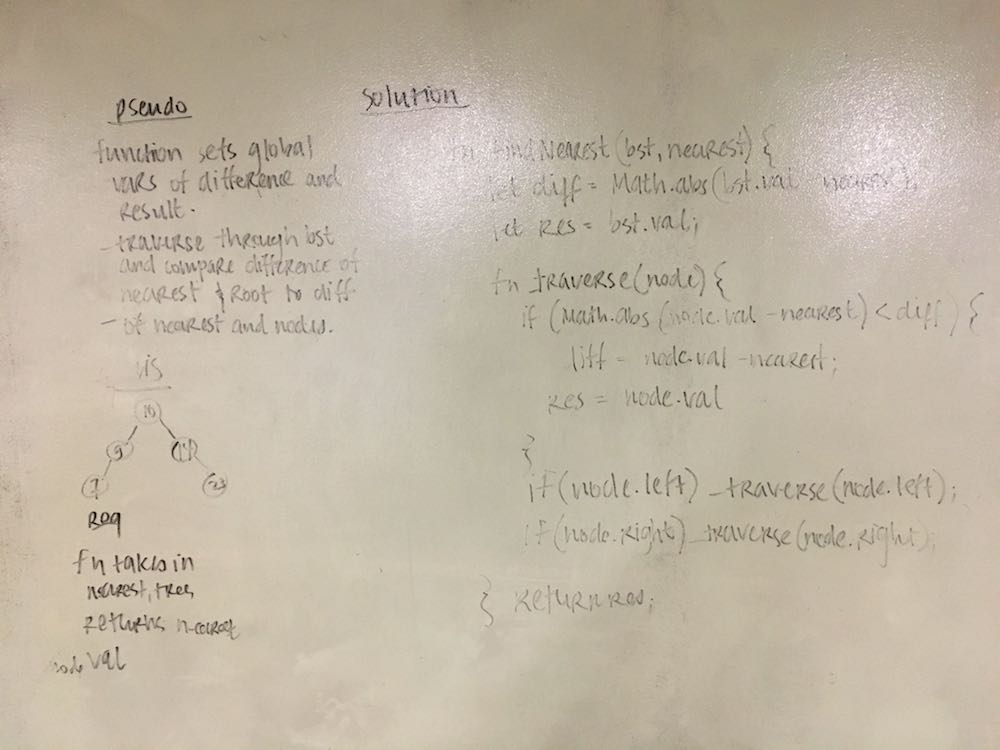 pseudo
function sets global
vars of difference and
result.
-traverse through bst
and compare difference of
nearest & root to diff
- of nearest and nodes.
vis
10
9
7
Req
fn takes in
nearest, tree
returns nearest
node val
solution
fn findNearest (bst, nearest) {
let diff = Math.abs(bst.val - nearest);
let res = bst.val;
fn traverse(node) {
if (Math.abs (node.val - nearest) < diff) {
diff = node.val - nearest;
res = node.val
}
if (node.left) traverse(node.left);
if (node.right) traverse(node.right);
} return res;